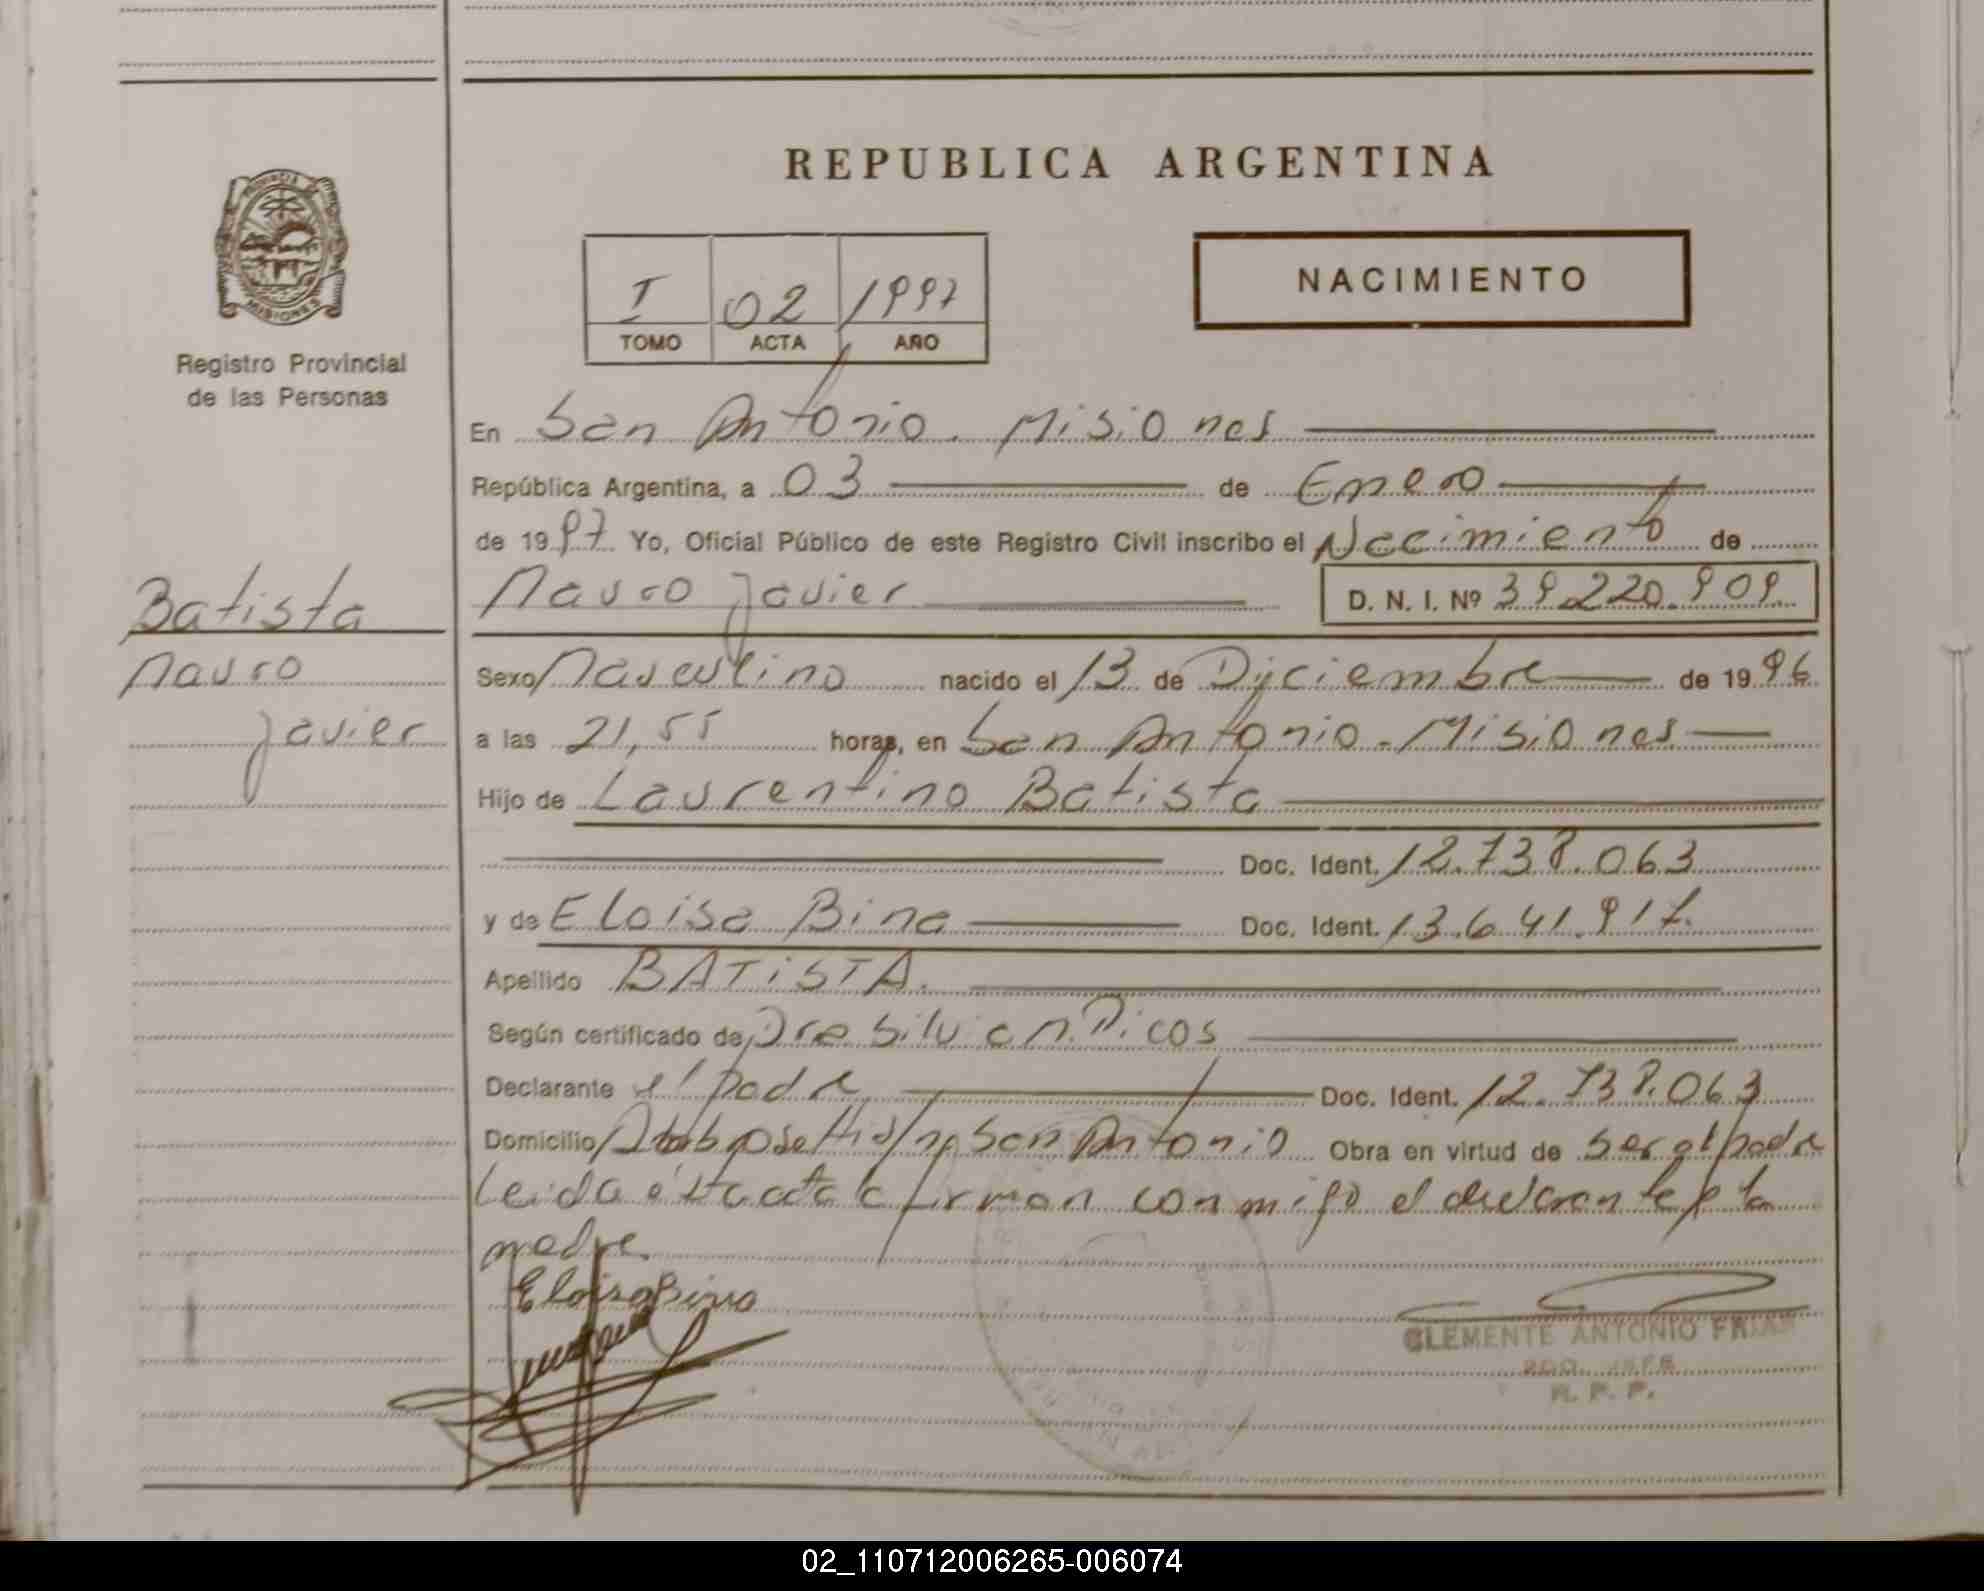 REPUBLICA ARGENTINA
PROVINCIA DE
MISIONES
Registro Provincial
de las Personas
I 02 1997
TOMO ACTA AÑO
NACIMIENTO
En San Antonio. Misiones
República Argentina, a 03 de Enero
de 1997 Yo, Oficial Público de este Registro Civil inscribo el Nacimiento de
Mauro Javier D. N. I. Nº 39.220.909
Batista
Mauro
Javier
Sexo Masculino nacido el 13 de Diciembre de 1996
a las 21,55 horas, en San Antonio - Misiones
Hijo de Laurentino Batista
Doc. Ident. 12.738.063
y de Eloisa Bina Doc. Ident. 13.641.917.
Apellido BATISTA.
Según certificado de Silvian Picos
Declarante el padre Doc. Ident. 12.738.063
Domicilio San Antonio Obra en virtud de ser el padre
leida ésta acta firman conmigo el declarante y la
madre
Eloisa Bina
CLEMENTE ANTONIO FRIAS
2DO. JEFE
R. P. P.
02_110712006265-006074